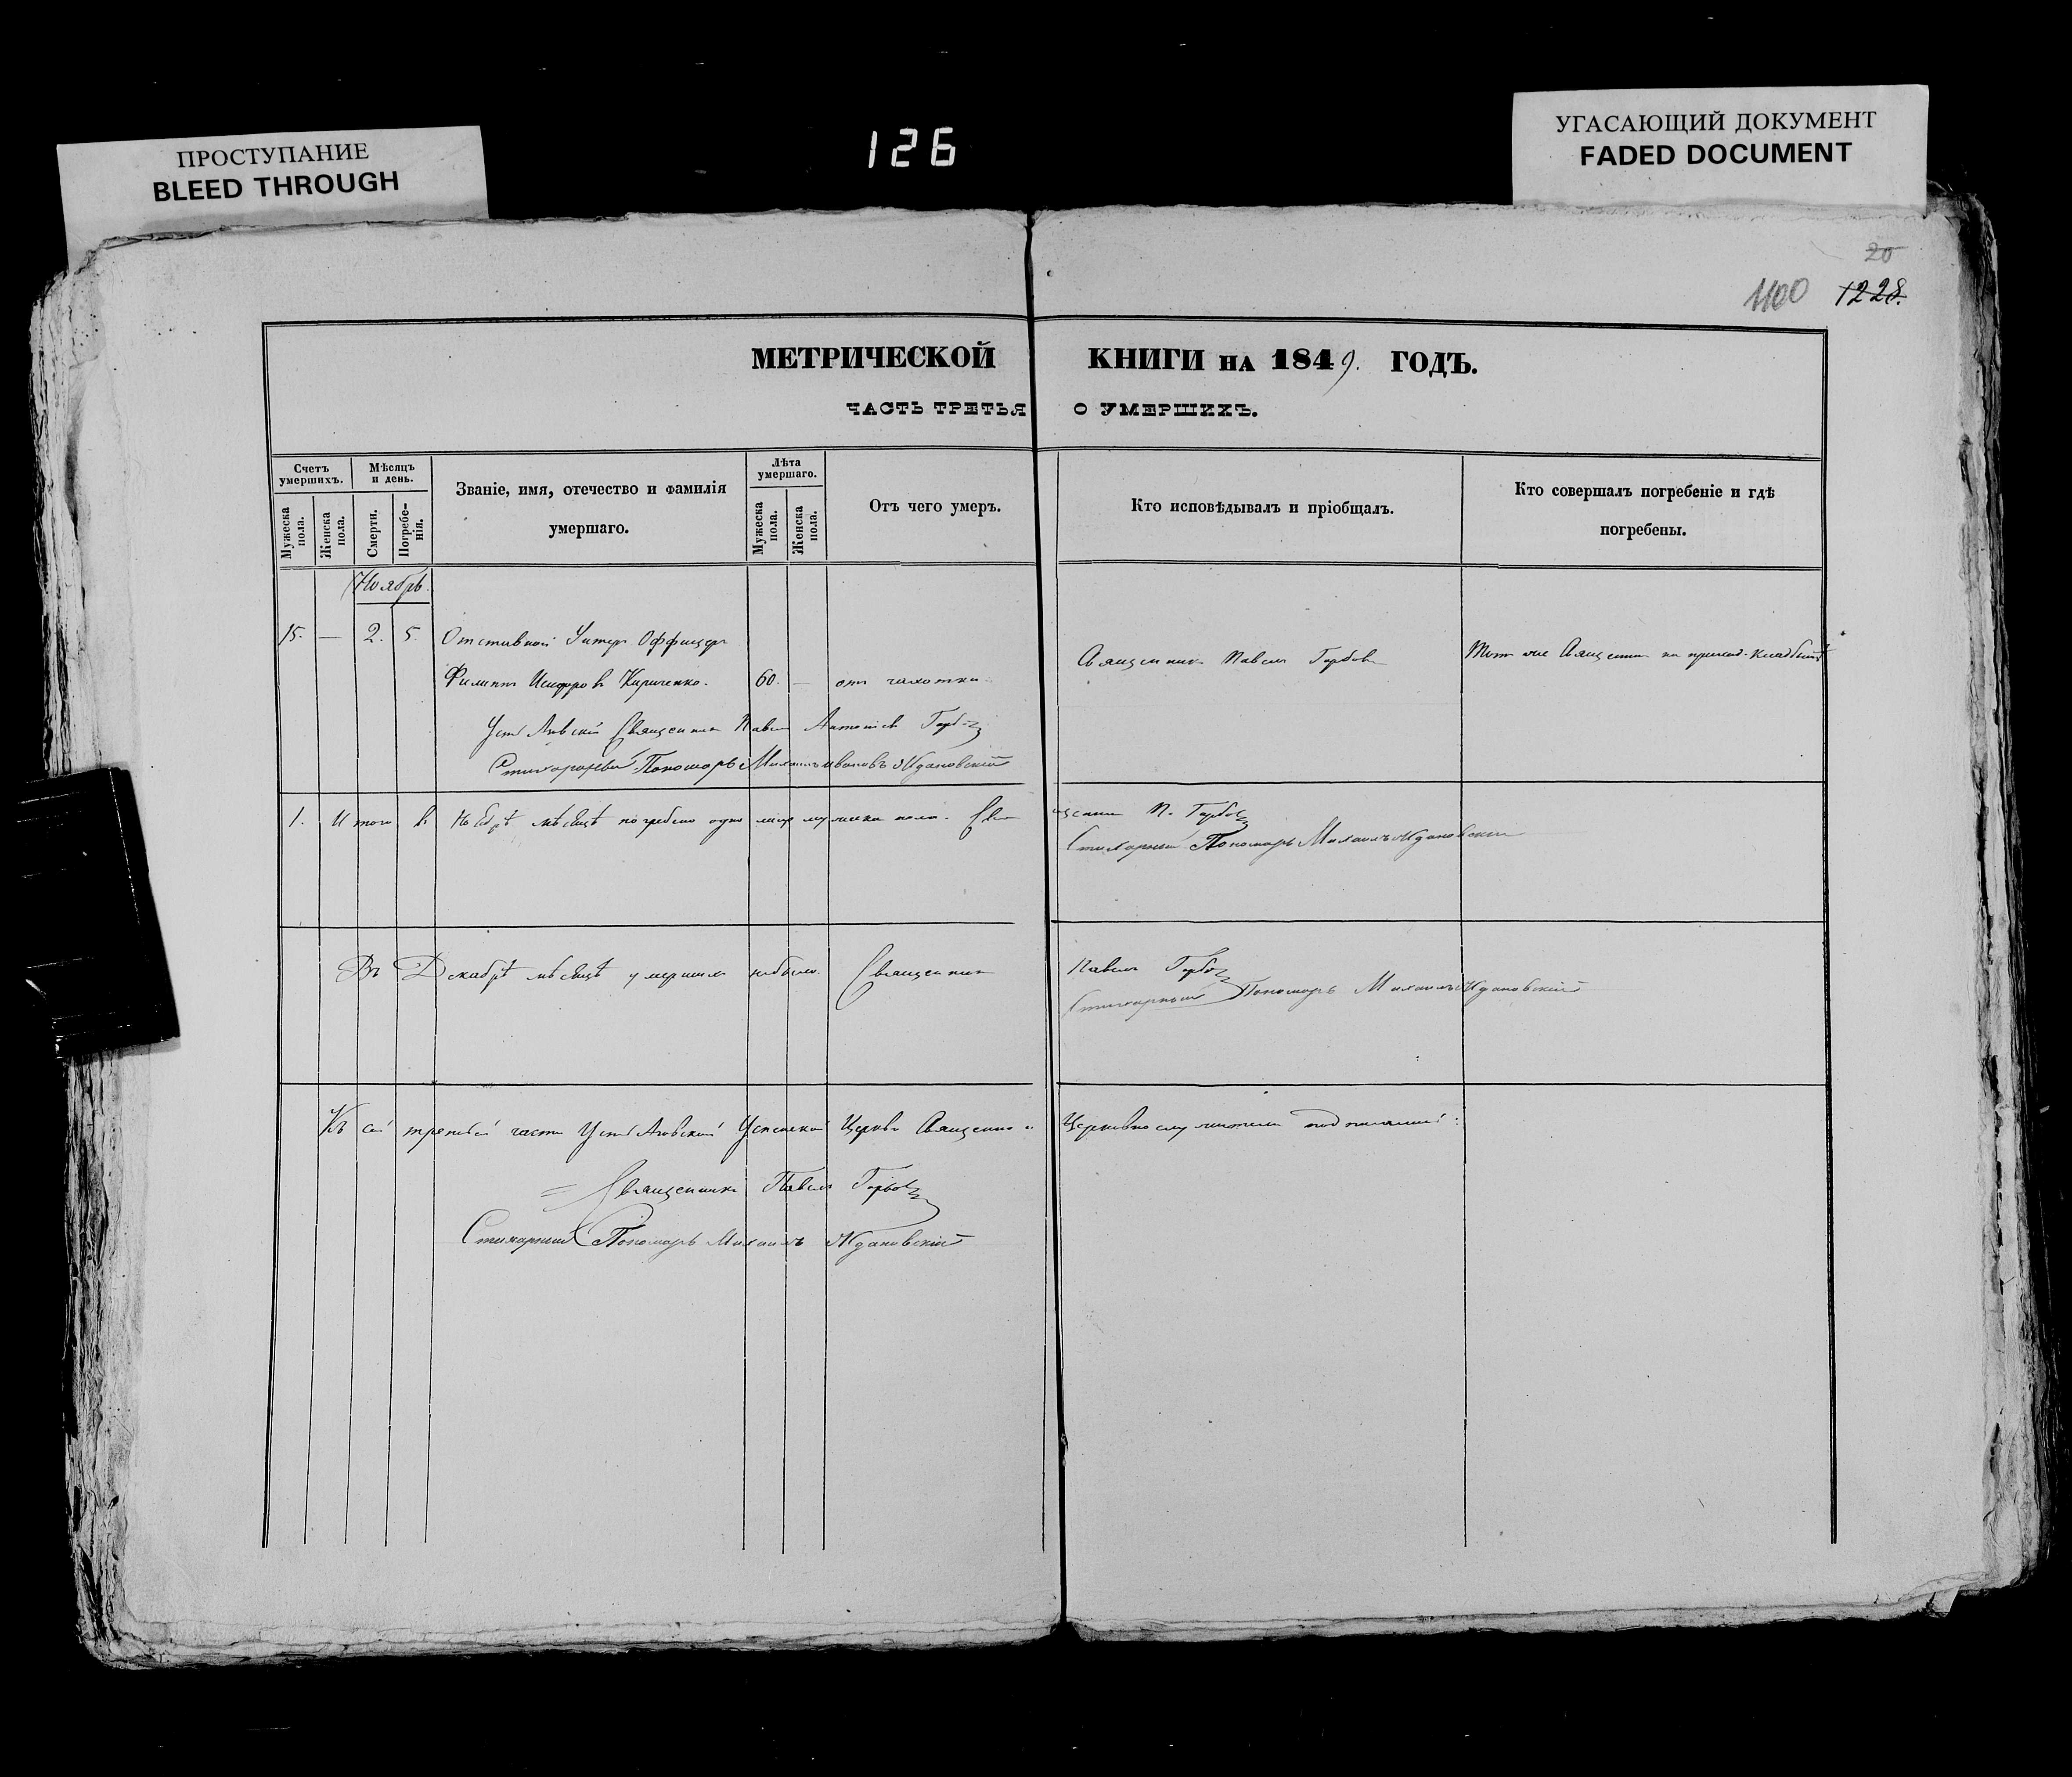 ПРОСТУПАНИЕ
BLEED THROUGH
126
УГАСАЮЩИЙ ДОКУМЕНТ
FADED DOCUMENT
20
1100 1228.
МЕТРИЧЕСКОЙ КНИГИ НА 1849. ГОДЪ.
ЧАСТЬ ТРЕТЬЯ О УМЕРШИХЪ.
Счетъ умершихъ.
Мужеска пола.
Женска пола.
Мѣсяцъ и день.
Смерти.
Погребе-нія.
Званіе, имя, отечество и фамилія
умершаго.
Лѣта умершаго.
Мужеска пола.
Женска пола.
Отъ чего умеръ.
Кто исповѣдывалъ и пріобщалъ.
Кто совершалъ погребеніе и гдѣ
погребены.
Ноябрь.
15. — 2. 5. Отставной Унтеръ Оффицеръ
Филиппъ Исидоровъ Кириченко. 60. — отъ чахотки
Священникъ Павелъ Горбовъ
Тотъ же Священникъ на приход. кладбищѣ
Священникъ Павелъ Антоніевъ
Стихарный Пономарь Михаилъ Ивановъ Ждановскій
1. Итого въ мѣсяцѣ погребено мужеска пола. Священникъ П.
Стихарный Пономарь Михаилъ Ждановскій
Въ Декабрѣ мѣсяцѣ умершихъ небыло. Священникъ Павелъ
Стихарный Пономарь Михаилъ Ждановскій
Къ сей третьей части Успенской Церкви Священно и Церковнослужители
Священникъ Павелъ
Стихарный Пономарь Михаилъ Ждановскій